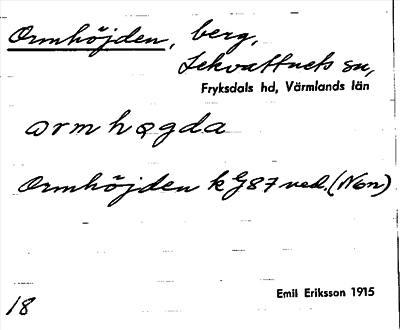 Ormhöjden, berg,
Lekvattnets sn,
Fryksdals hd, Värmlands län
ormhøgda
Ormhöjden k G87 ned. (Non)
Emil Eriksson 1915
18